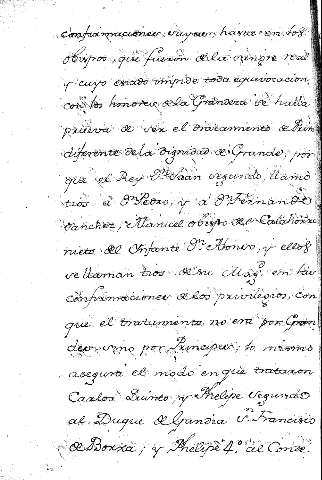 confirmaciones suyas, hasta en los
obispos, que fueron de la sangre real
y cuyo estado impide toda equivocacion
con los honores de la Grandeza se halla
prueva de ser el tratamiento de Prim
diferente de la dignidad de Grande; por
que el Rey Dn Juan segundo, llamó
tios á Dn Pedro, y á Dn Fernando
Sanchez, Manuel obispo de Calahorra
nieto del Infante Dn Alonso, y ellos
se llaman tios de su Magd en las
confirmaciones de los privilegios, con
que el tratamiento no era por Gran
des sino por Principes; lo mismo
asegura el modo en que trataron
Carlos Quinto, y Phelipe segundo
al Duque de Gandia Sn Francisco
de Borxa; y Phelipe 4º al Conde